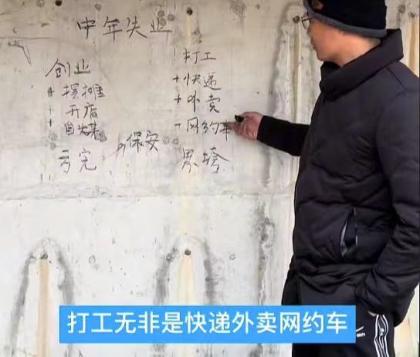 中年失业
创业
+ 摆摊
+ 开店
+ 自媒
亏完
保安
打工
+ 快递
+ 外卖
- 网约车
累垮
打工无非是快递外卖网约车